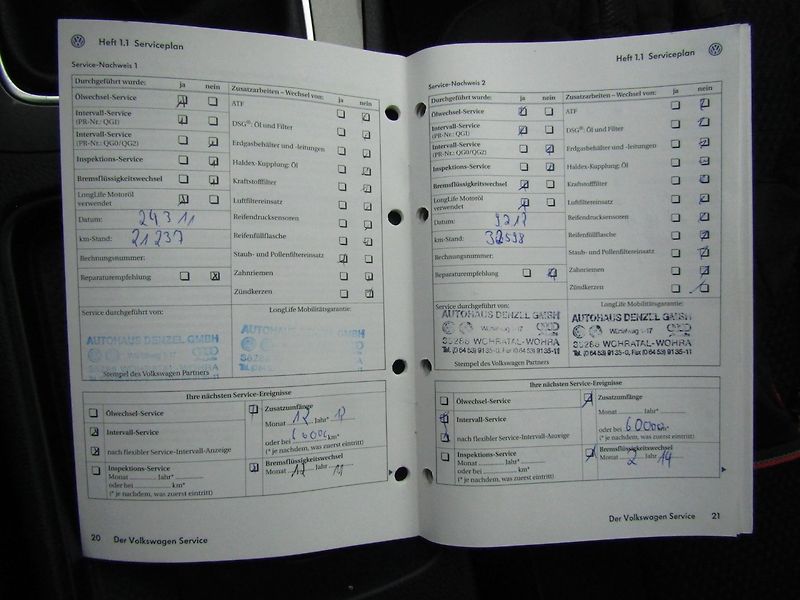 Heft 1.1 Serviceplan
Service-Nachweis 1
Durchgeführt wurde: ja nein
Ölwechsel-Service
Intervall-Service
(PR-Nr.: QG1)
Intervall-Service
(PR-Nr.: QG0/QG2)
Inspektions-Service
Bremsflüssigkeitswechsel
LongLife Motoröl
verwendet
Datum: 24 3 11
km-Stand: 21 237
Rechnungsnummer:
Reparaturempfehlung
Zusatzarbeiten – Wechsel von: ja nein
ATF
DSG®: Öl und Filter
Erdgasbehälter und -leitungen
Haldex-Kupplung: Öl
Kraftstofffilter
Luftfiltereinsatz
Reifendrucksensoren
Reifenfüllflasche
Staub- und Pollenfiltereinsatz
Zahnriemen
Zündkerzen
Service durchgeführt von:
LongLife Mobilitätsgarantie:
AUTOHAUS DENZEL GMBH
AUTOHAUS DENZEL GMBH
Stempel des Volkswagen Partners
Ihre nächsten Service-Ereignisse
Ölwechsel-Service
Intervall-Service
nach flexibler Service-Intervall-Anzeige
Inspektions-Service
Monat Jahr*
oder bei km*
(* je nachdem, was zuerst eintritt)
Zusatzumfänge
Monat 12 Jahr* 12
oder bei 60000 km*
(* je nachdem, was zuerst eintritt)
Bremsflüssigkeitswechsel
Monat 12 Jahr 11
20 Der Volkswagen Service
Heft 1.1 Serviceplan
Service-Nachweis 2
Durchgeführt wurde: ja nein
Ölwechsel-Service
Intervall-Service
(PR-Nr.: QG1)
Intervall-Service
(PR-Nr.: QG0/QG2)
Inspektions-Service
Bremsflüssigkeitswechsel
LongLife Motoröl
verwendet
Datum: 9 2 12
km-Stand: 32598
Rechnungsnummer:
Reparaturempfehlung
Zusatzarbeiten – Wechsel von: ja nein
ATF
DSG®: Öl und Filter
Erdgasbehälter und -leitungen
Haldex-Kupplung: Öl
Kraftstofffilter
Luftfiltereinsatz
Reifendrucksensoren
Reifenfüllflasche
Staub- und Pollenfiltereinsatz
Zahnriemen
Zündkerzen
Service durchgeführt von:
LongLife Mobilitätsgarantie:
AUTOHAUS DENZEL GMBH
35288 WOHRATAL-WOHRA
Tel. (0 64 53) 91 35-0, Fax (0 64 53) 91 35-11
AUTOHAUS DENZEL GMBH
35288 WOHRATAL-WOHRA
Tel. (0 64 53) 91 35-0, Fax (0 64 53) 91 35-11
Stempel des Volkswagen Partners
Ihre nächsten Service-Ereignisse
Ölwechsel-Service
Intervall-Service
nach flexibler Service-Intervall-Anzeige
Inspektions-Service
Monat Jahr*
oder bei km*
(* je nachdem, was zuerst eintritt)
Zusatzumfänge
Monat Jahr*
oder bei 60000
(* je nachdem, was zuerst eintritt)
Bremsflüssigkeitswechsel
Monat 2 Jahr 14
Der Volkswagen Service 21